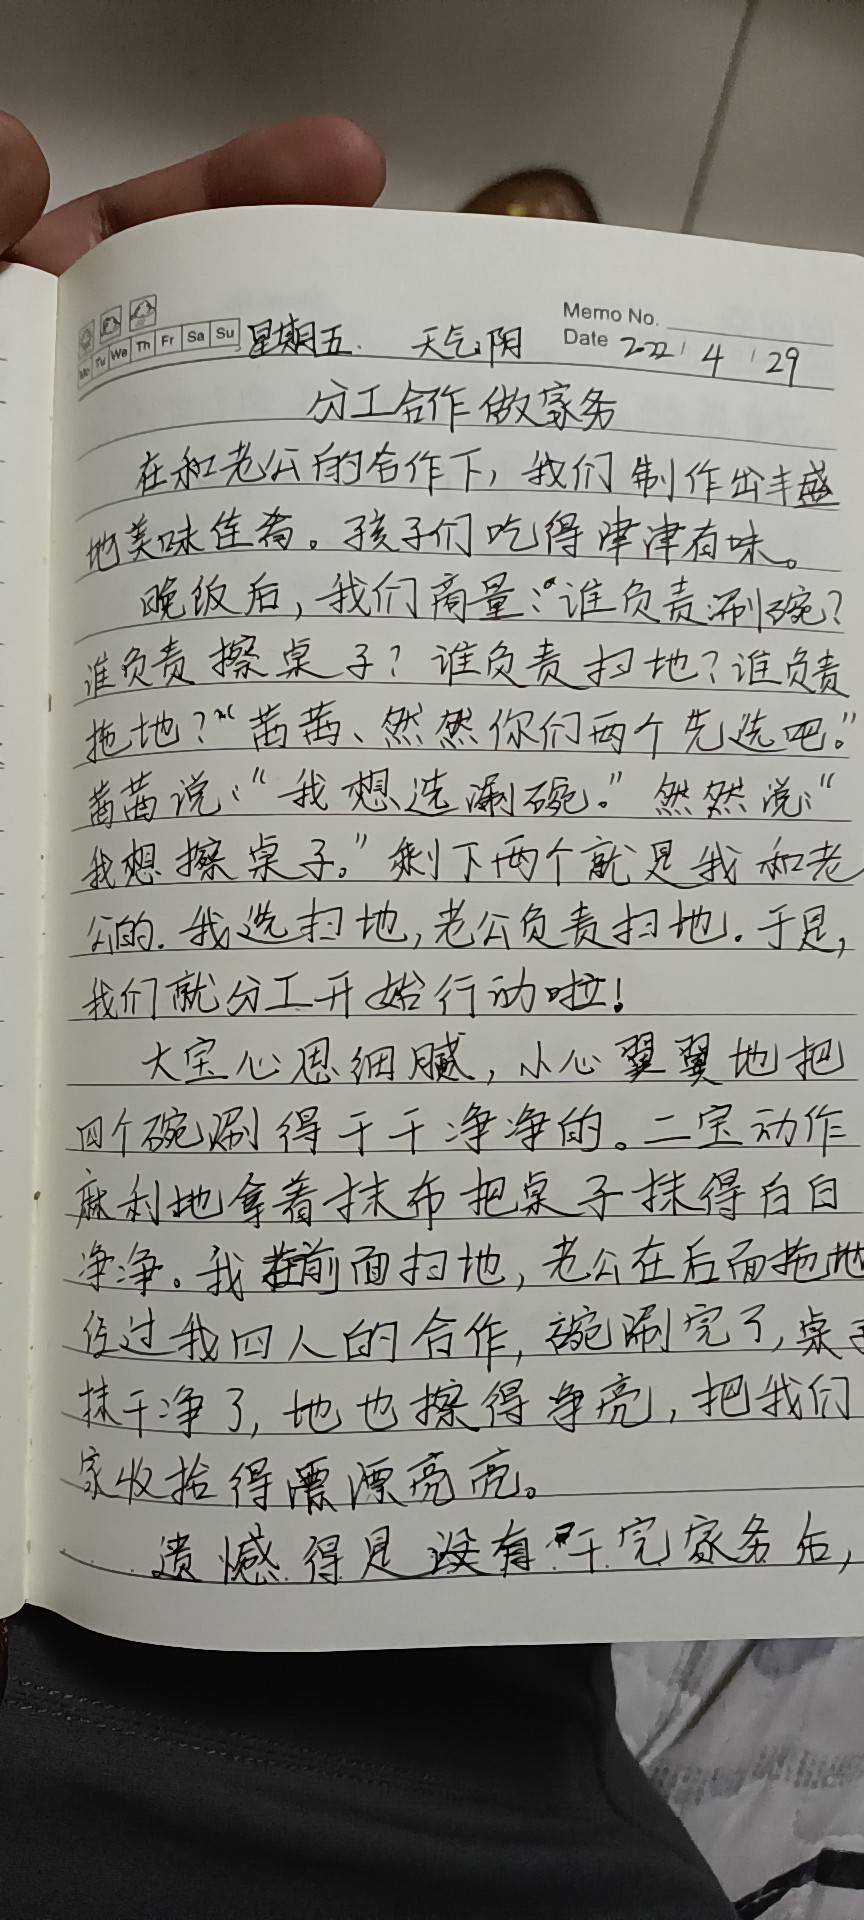 Memo No.
Mo Tu We Th Fr Sa Su 星期五. 天气阴 Date 2022 / 4 / 29
分工合作做家务
在和老公的合作下，我们制作出丰盛
地美味佳肴。孩子们吃得津津有味。
晚饭后，我们商量：“谁负责涮碗？
谁负责擦桌子？谁负责扫地？谁负责
拖地？”“茜茜、然然你们两个先选吧。”
茜茜说：“我想选涮碗。”然然说：“
我想擦桌子。”剩下两个就是我和老
公的.我选扫地，老公负责扫地.于是，
我们就分工开始行动啦！
大宝心思细腻，小心翼翼地把
四个碗涮得干干净净的。二宝动作
麻利地拿着抹布把桌子抹得白白
净净。我在前面扫地，老公在后面拖地
经过我四人的合作，碗涮完了，桌子
抹干净了，地也擦得净亮，把我们
家收拾得漂漂亮亮。
遗憾得是没有干完家务后，